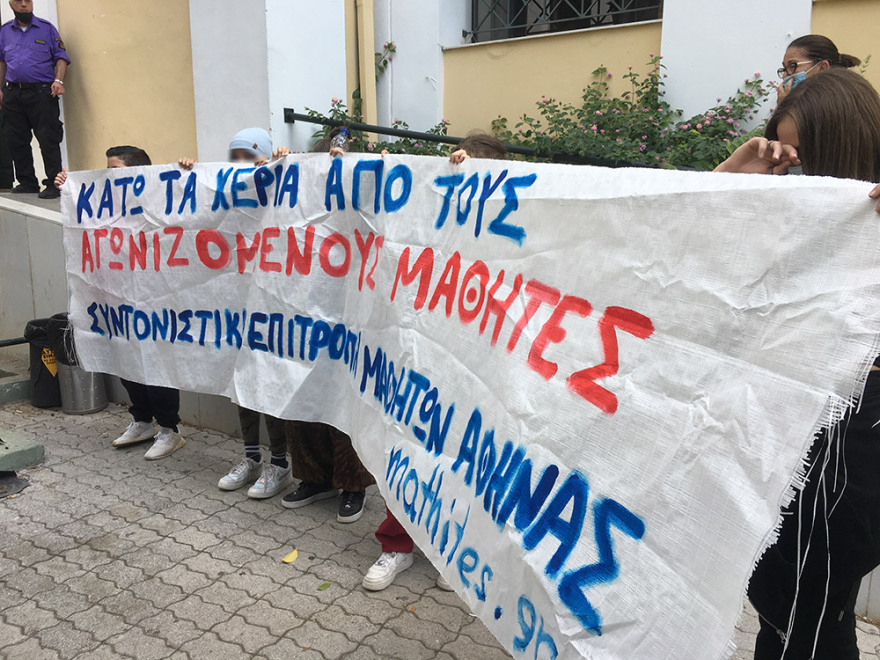 ΚΑΤΩ ΤΑ ΧΕΡΙΑ ΑΠΟ ΤΟΥΣ
ΑΓΩΝΙΖΟΜΕΝΟΥΣ ΜΑΘΗΤΕΣ
ΣΥΝΤΟΝΙΣΤΙΚΗ ΕΠΙΤΡΟΠΗ ΜΑΘΗΤΩΝ ΑΘΗΝΑΣ
mathites.gr